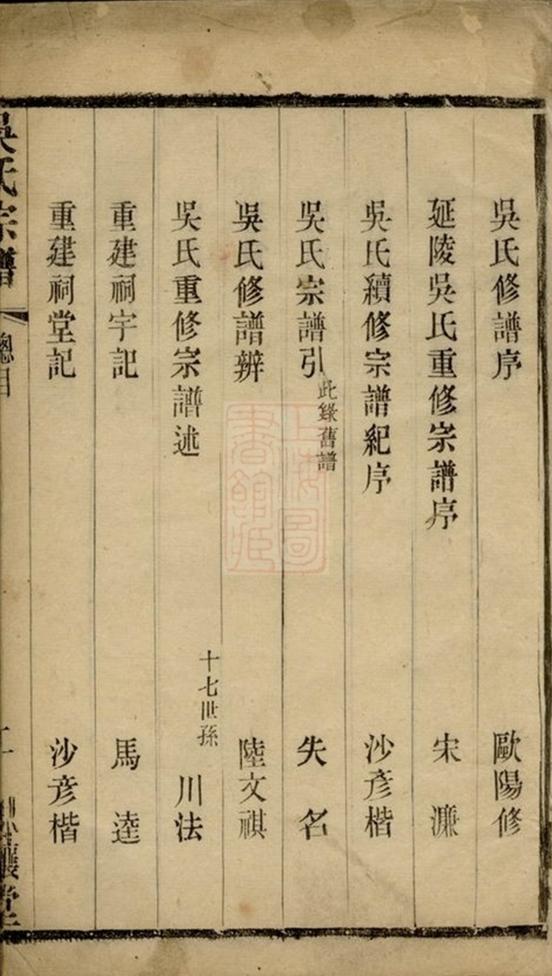 吳氏修譜序 歐陽修
延陵吳氏重修宗譜序 宋濂
吳氏續修宗譜紀序 沙彥楷
吳氏宗譜引 此錄舊譜 失名
吳氏修譜辨 陸文祺
吳氏重修宗譜述 十七世孫 川法
重建祠宇記 馬逵
重建祠堂記 沙彥楷
吳氏宗譜 總目
上海圖書館藏